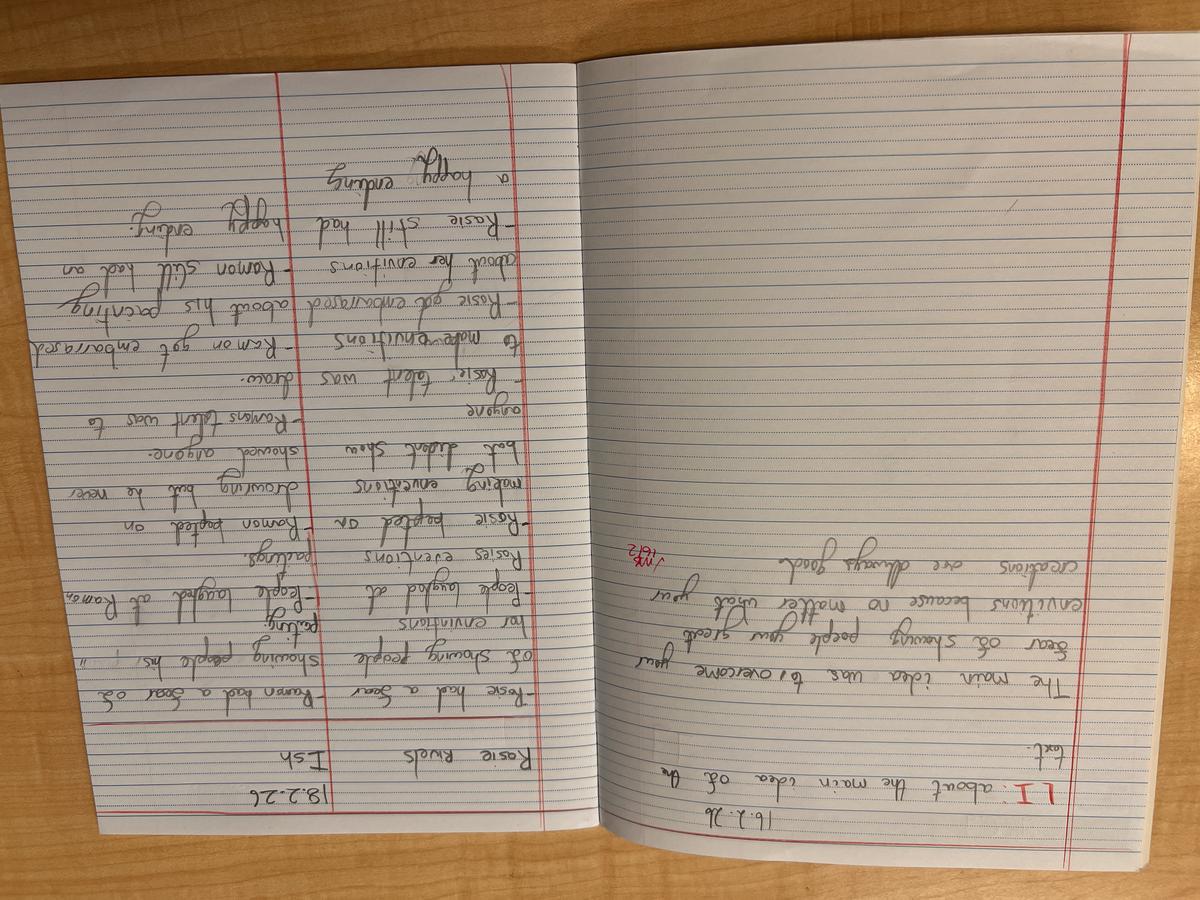 16.2.26
LI: about the main idea of the
text.
The main idea was to overcome your
fear of showing people your great
envitions because no matter what your
creations are always good.
16/2
18.2.26
Rosie Rivels
-Rosie had a fear
of showing people
her envintions
-People laughed at
Rosies eventions
-Rosie kepted on
making enventions
but dident show
anyone
-Rosie, talent was
to make envitions
-Rosie got embarrased
about her envitions
-Rosie still had
a happy ending
Ish
-Ramon had a fear of
showing people his
pating.
-People laughed at Ramon,
patings.
-Ramon kepted on
drawing but he never
showed anyone.
-Ramons talent was to
draw.
-Ramon got embarrased
about his painting
-Ramon still had an
happy ending.